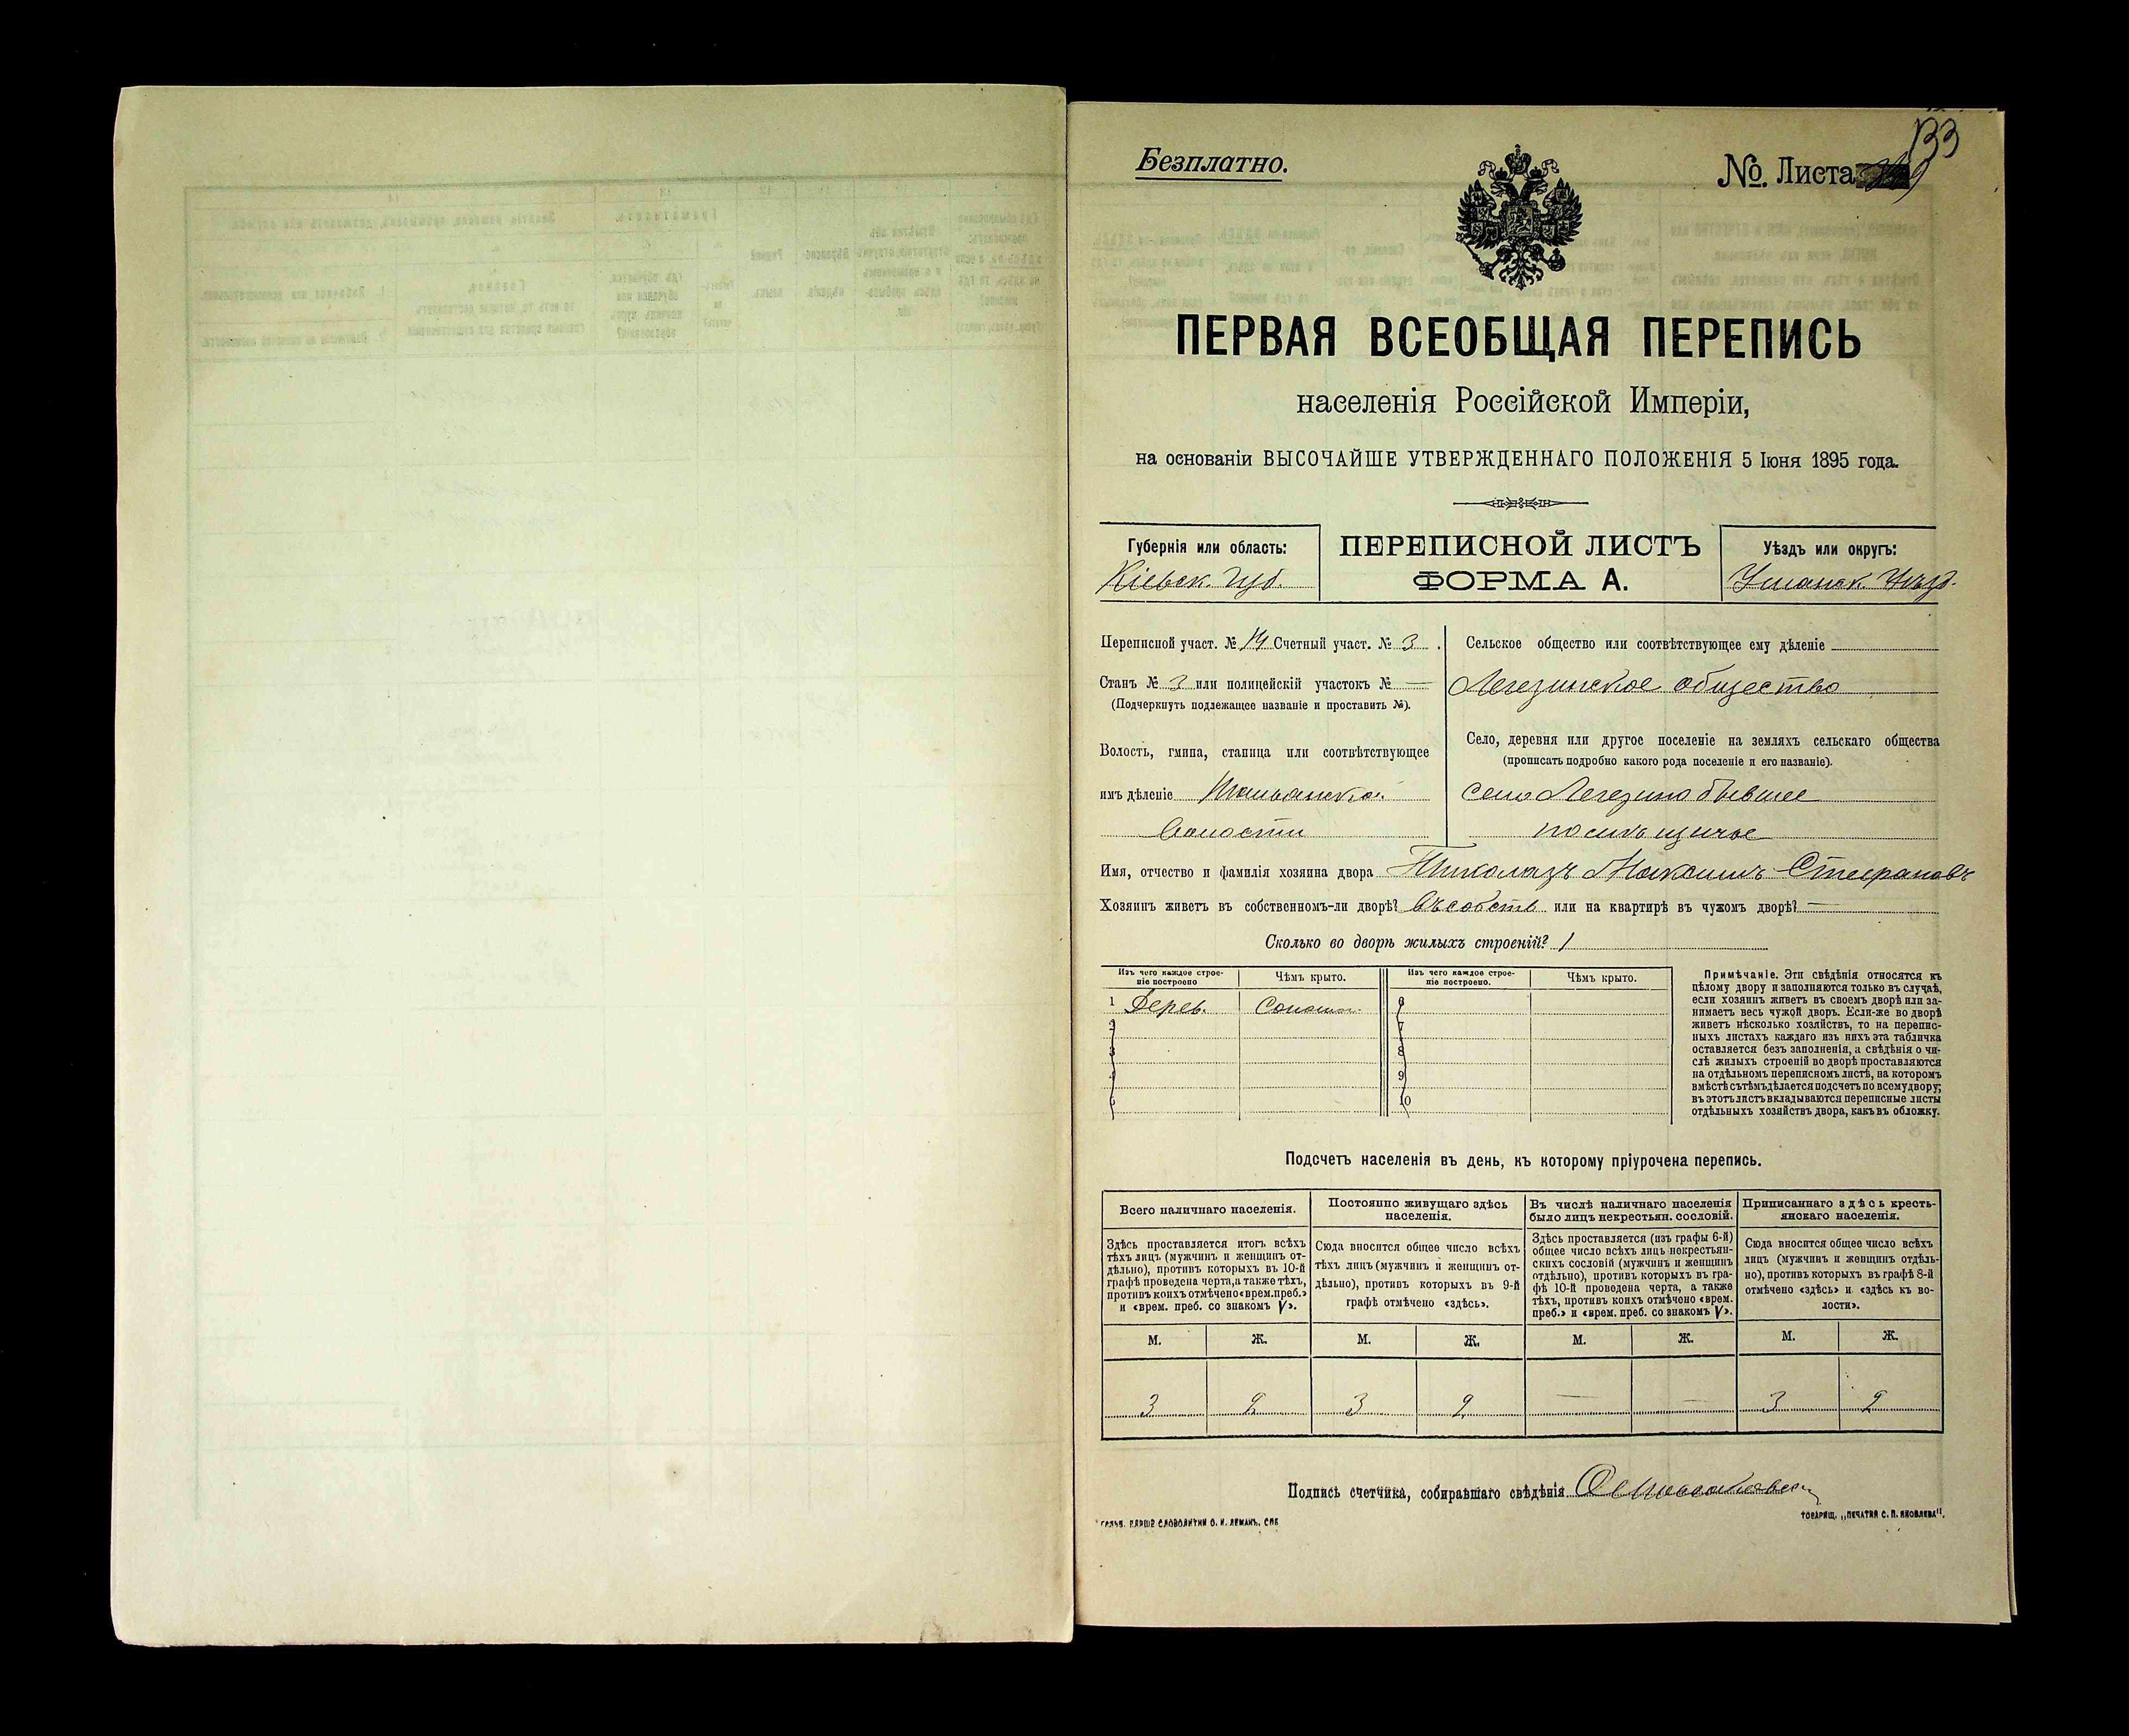 Безплатно.
№. Листа
133
ПЕРВАЯ ВСЕОБЩАЯ ПЕРЕПИСЬ
населенія Россійской Имперіи,
на основаніи ВЫСОЧАЙШЕ УТВЕРЖДЕННАГО ПОЛОЖЕНІЯ 5 Іюня 1895 года.
Губернія или область:
Кіевск. Губ.
ПЕРЕПИСНОЙ ЛИСТЪ
ФОРМА А.
Уѣздъ или округъ:
Уманск. Уѣзд.
Переписной участ. № 14 Счетный участ. № 3.
Станъ № 3 или полицейскій участокъ № —
(Подчеркнуть подлежащее названіе и проставить №).
Волость, гмина, станица или соотвѣтствующее
имъ дѣленіе
Волости
Сельское общество или соотвѣтствующее ему дѣленіе
Легезинское общество
Село, деревня или другое поселеніе на земляхъ сельскаго общества
(прописать подробно какого рода поселеніе и его названіе).
село Легезино бывшее
помѣщичье
Имя, отчество и фамилія хозяина двора Николазъ Максимъ Стефановъ
Хозяинъ живетъ въ собственномъ-ли дворѣ? Въ собств или на квартирѣ въ чужомъ дворѣ? —
Сколько во дворѣ жилыхъ строеній? 1
Изъ чего каждое строе-
ніе построено
Чѣмъ крыто.
Изъ чего каждое строе-
ніе построено.
Чѣмъ крыто.
1 Дерев. Солома 6
2 7
3 8
4 9
5 10
Примѣчаніе. Эти свѣдѣнія относятся къ
цѣлому двору и заполняются только въ случаѣ,
если хозяинъ живетъ въ своемъ дворѣ или за-
нимаетъ весь чужой дворъ. Если-же во дворѣ
живетъ нѣсколько хозяйствъ, то на перепис-
ныхъ листахъ каждаго изъ нихъ эта табличка
оставляется безъ заполненія, а свѣдѣнія о чи-
слѣ жилыхъ строеній во дворѣ проставляются
на отдѣльномъ переписномъ листѣ, на которомъ
вмѣстѣ съ тѣмъ дѣлается подсчетъ по всему двору;
въ этотъ листъ вкладываются переписные листы
отдѣльныхъ хозяйствъ двора, какъ въ обложку.
Подсчетъ населенія въ день, къ которому пріурочена перепись.
Всего наличнаго населенія.
Здѣсь проставляется итогъ всѣхъ
тѣхъ лицъ (мужчинъ и женщинъ от-
дѣльно), противъ которыхъ въ 10-й
графѣ проведена черта, а также тѣхъ,
противъ коихъ отмѣчено «врем. преб.»
и «врем. преб. со знакомъ V».
Постоянно живущаго здѣсь
населенія.
Сюда вносится общее число всѣхъ
тѣхъ лицъ (мужчинъ и женщинъ от-
дѣльно), противъ которыхъ въ 9-й
графѣ отмѣчено «здѣсь».
Въ числѣ наличнаго населенія
было лицъ некрестьян. сословій.
Здѣсь проставляется (изъ графы 6-й)
общее число всѣхъ лицъ некрестьян-
скихъ сословій (мужчинъ и женщинъ
отдѣльно), противъ которыхъ въ гра-
фѣ 10-й проведена черта, а также
тѣхъ, противъ коихъ отмѣчено «врем.
преб.» и «врем. преб. со знакомъ V».
Приписаннаго здѣсь кресть-
янскаго населенія.
Сюда вносится общее число всѣхъ
лицъ (мужчинъ и женщинъ отдѣль-
но), противъ которыхъ въ графѣ 8-й
отмѣчено «здѣсь» и «здѣсь къ во-
лости».
М. Ж. М. Ж. М. Ж. М. Ж.
3 2 3 2 — — 3 2
Подпись счетчика, собиравшаго свѣдѣнія
СЛОВОЛИТНИ О. И. ЛЕМАНЪ. СПБ
ТОВАРИЩ. „ПЕЧАТНЯ С. П. ЯКОВЛЕВА".